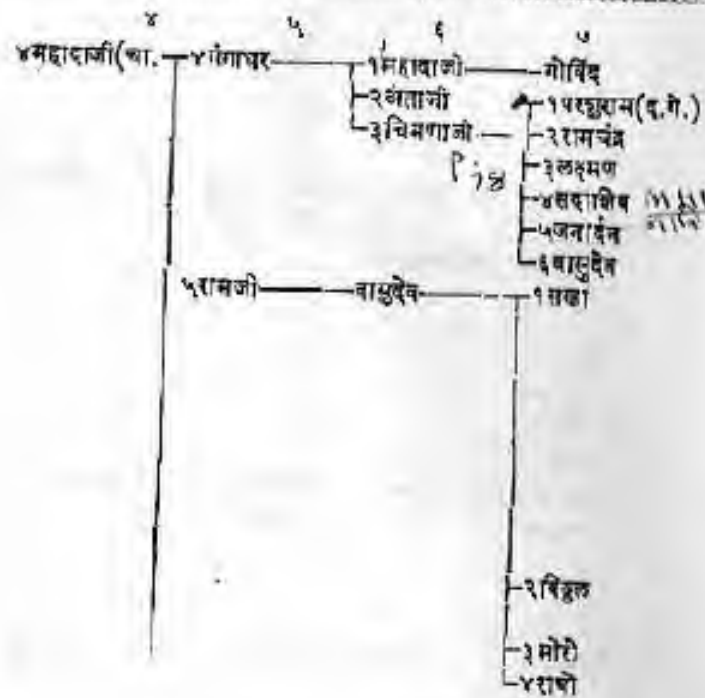 ४ ५ ६ ७
४महादाजी(चा. ४गंगाधर १महादाजी गोविंद
२अंताजी १परशुराम(द.गे.)
३चिमणाजी २रामचंद्र
३लक्ष्मण
४सदाशिव
५जनार्दन
६वासुदेव
५रामजी वासुदेव १सखा
२विठ्ठल
३मोरो
४राघो